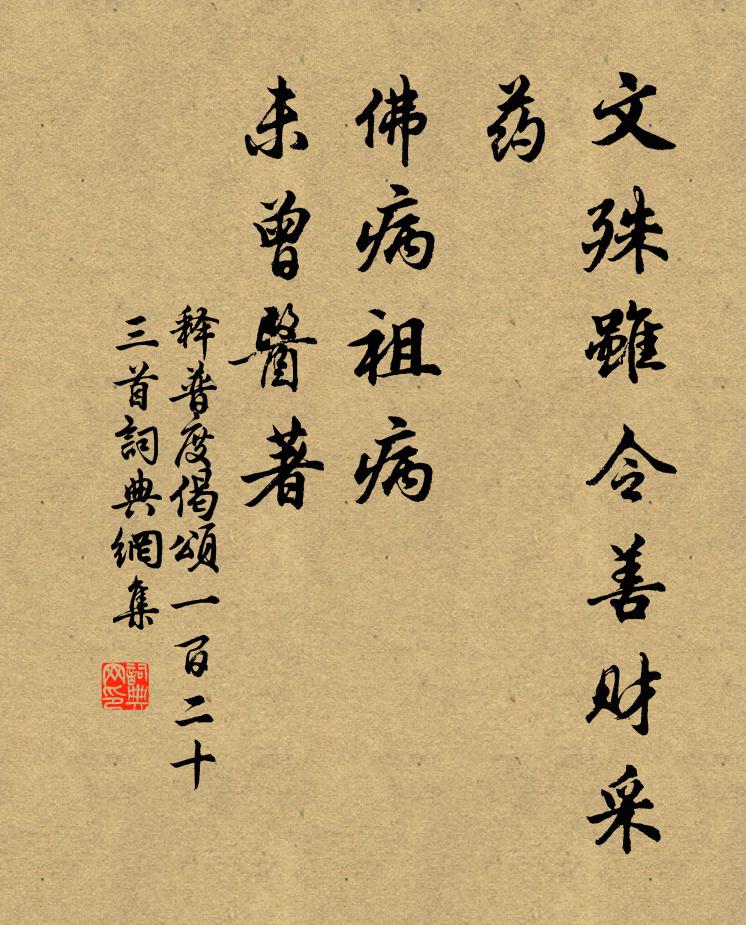 文殊雖令善财采
药
佛病祖病
未曾醫著
释普度偈頌一百二十
三首詞典網集
詞典网印